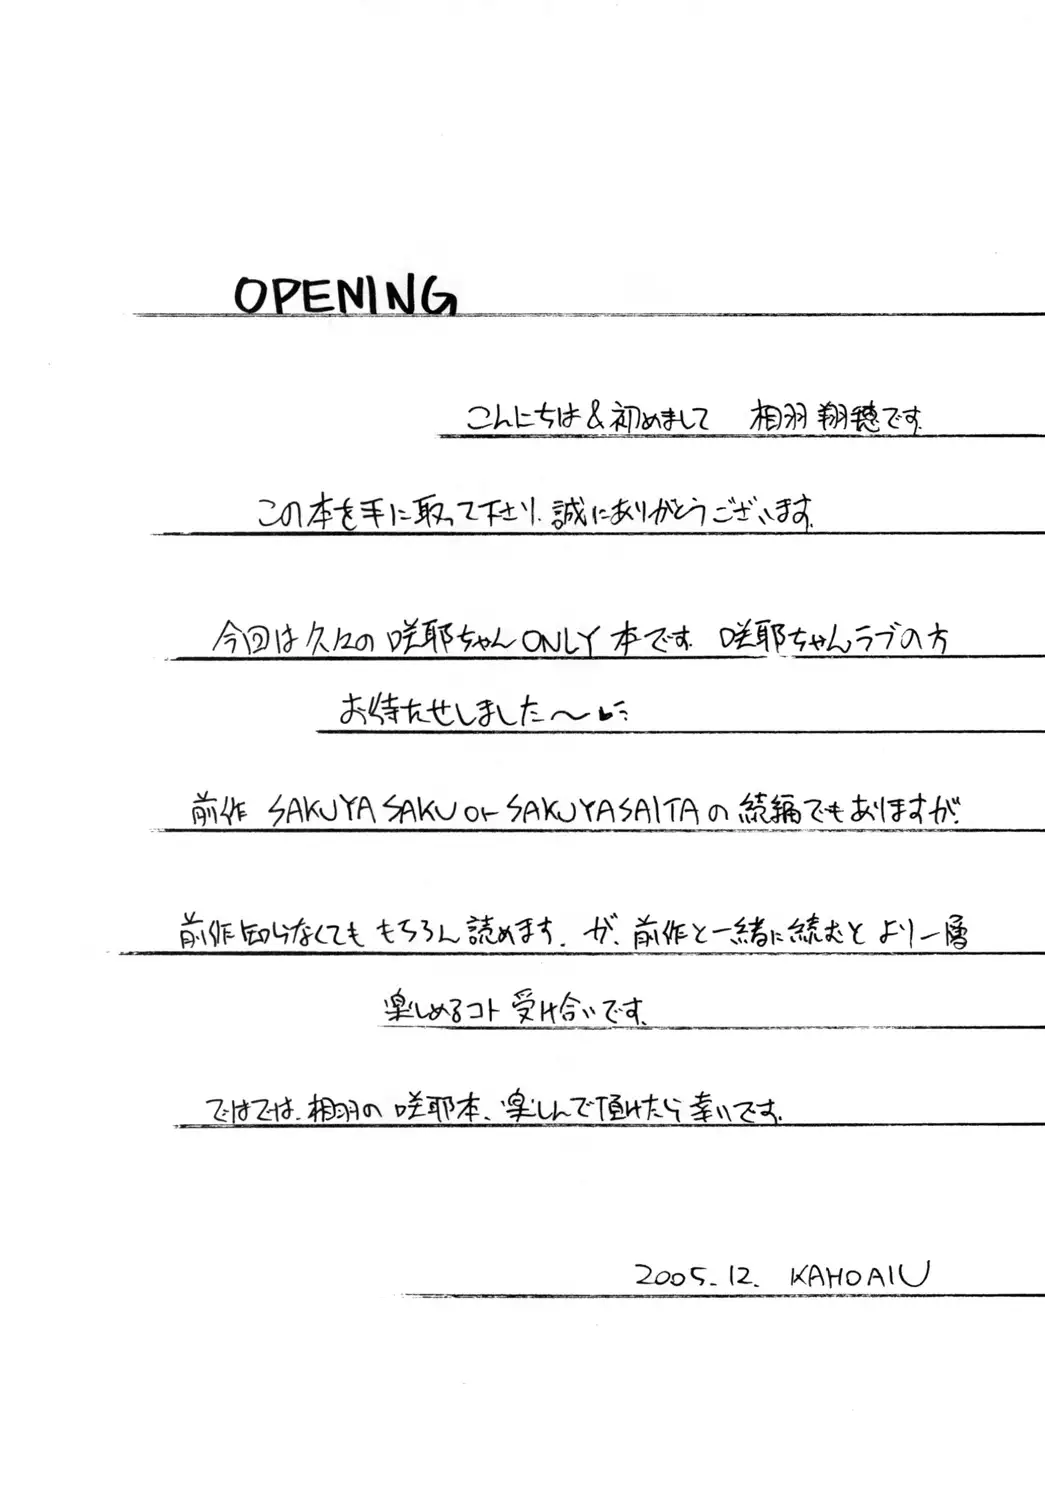 OPENING
こんにちは&初めまして 相羽 翔穂です。
この本を手に取って下さり、誠にありがとうございます。
今回は久々の咲耶ちゃんONLY本です。咲耶ちゃんラブの方
お待たせしました〜
前作 SAKUYA SAKU or SAKUYASAITAの続編でもありますが、
前作知らなくても もちろん読めます。が、前作と一緒に続むと より一層
楽しめるコト 受け合いです。
ではでは、相羽の 咲耶本、楽しんで頂けたら幸いです。
2005.12. KAHO AIU